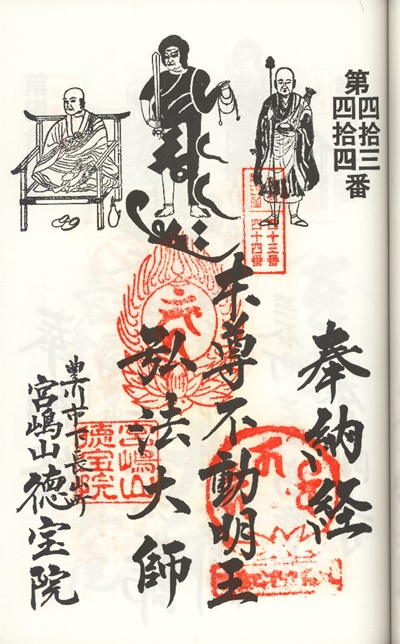 第四拾三
四拾四番
四十三番
四十四番
奉納経
本尊不動明王
弘法大師
豊川市下長山町
宮嶋山徳宝院
宮嶋山
徳宝院